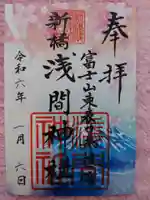 奉拝
富士山東表口
新橋
浅間神社
令和六年
一月六日